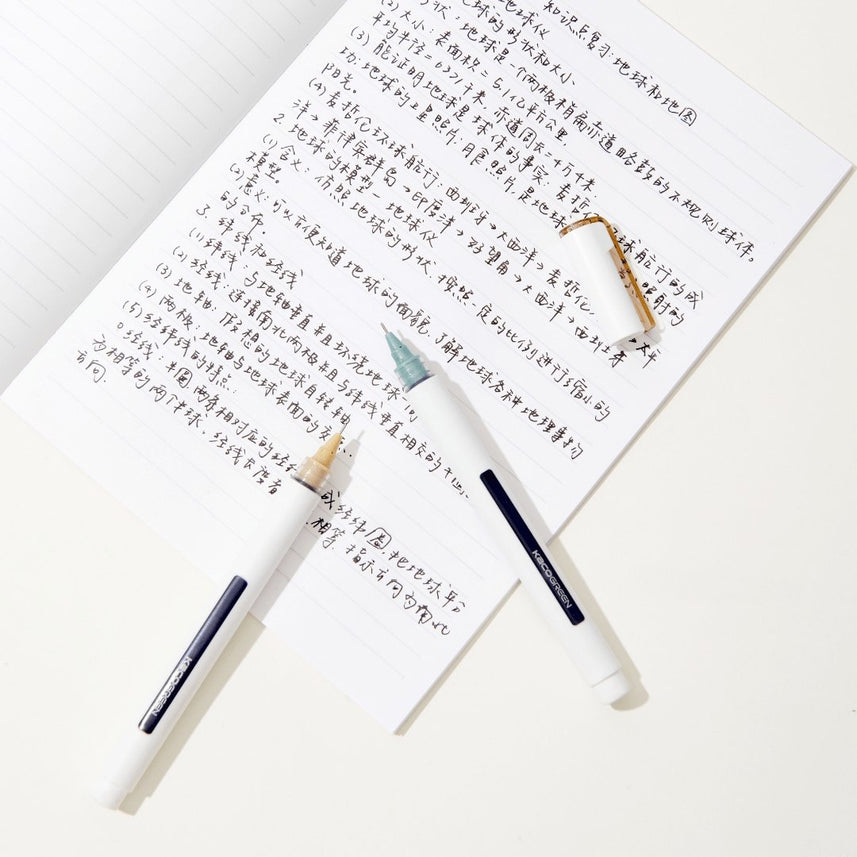 知识点复习:地球和地图
地球仪
地球的形状和大小
状:地球是一个两极稍扁赤道略鼓的不规则球体。
(2)大小:表面积=5.1亿平方公里,
平均半径=6371千米,赤道周长=4万千米
(3)能证明地球是球体的事实:麦哲伦 球航行的成
功:地球的卫星照片,月食照片是地球 照射的
阳光。
(4)麦哲伦环球航行:西班牙→大西洋→麦哲伦 太平
洋→菲律宾群岛→印度洋→好望角→大西洋→西班牙
2.地球的模型—地球仪
(1)含义:仿照地球的形状,按照一定的比例进行缩小的
模型。
(2)意义:可以方便知道地球的面貌,了解地球各种地理事物
的分布
3.纬线和经线
(1)纬线:与地轴垂直并且环绕地球一
(2)经线:连接南北两极并且与纬线垂直相交的半
(3)地轴:假想的地球自转轴
(4)两极:地轴与地球表面的交
(5)经纬线的特点:
○经线:半圆,两条相对应的经线 成经纬圈,把地球平分
为相等的两个半球,经线长度者 相等.指示方向为南北
方向.
KACOGREEN
KACOGREEN